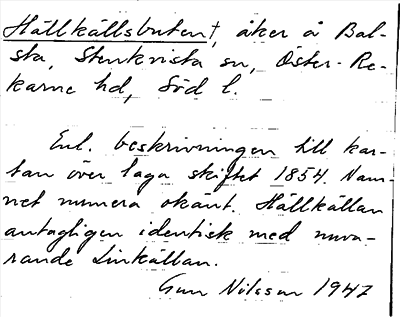 Hällkällsbuten†, åker å Bal-
sta, Stenkvista sn, Öster-Re-
karne hd, Söd l.
Enl. beskrivningen till kar-
tan över laga skiftet 1854. Nam-
net numera okänt. Hällkällan
antagligen identisk med nuva-
rande Linkällan.
Gun Nilsson 1947